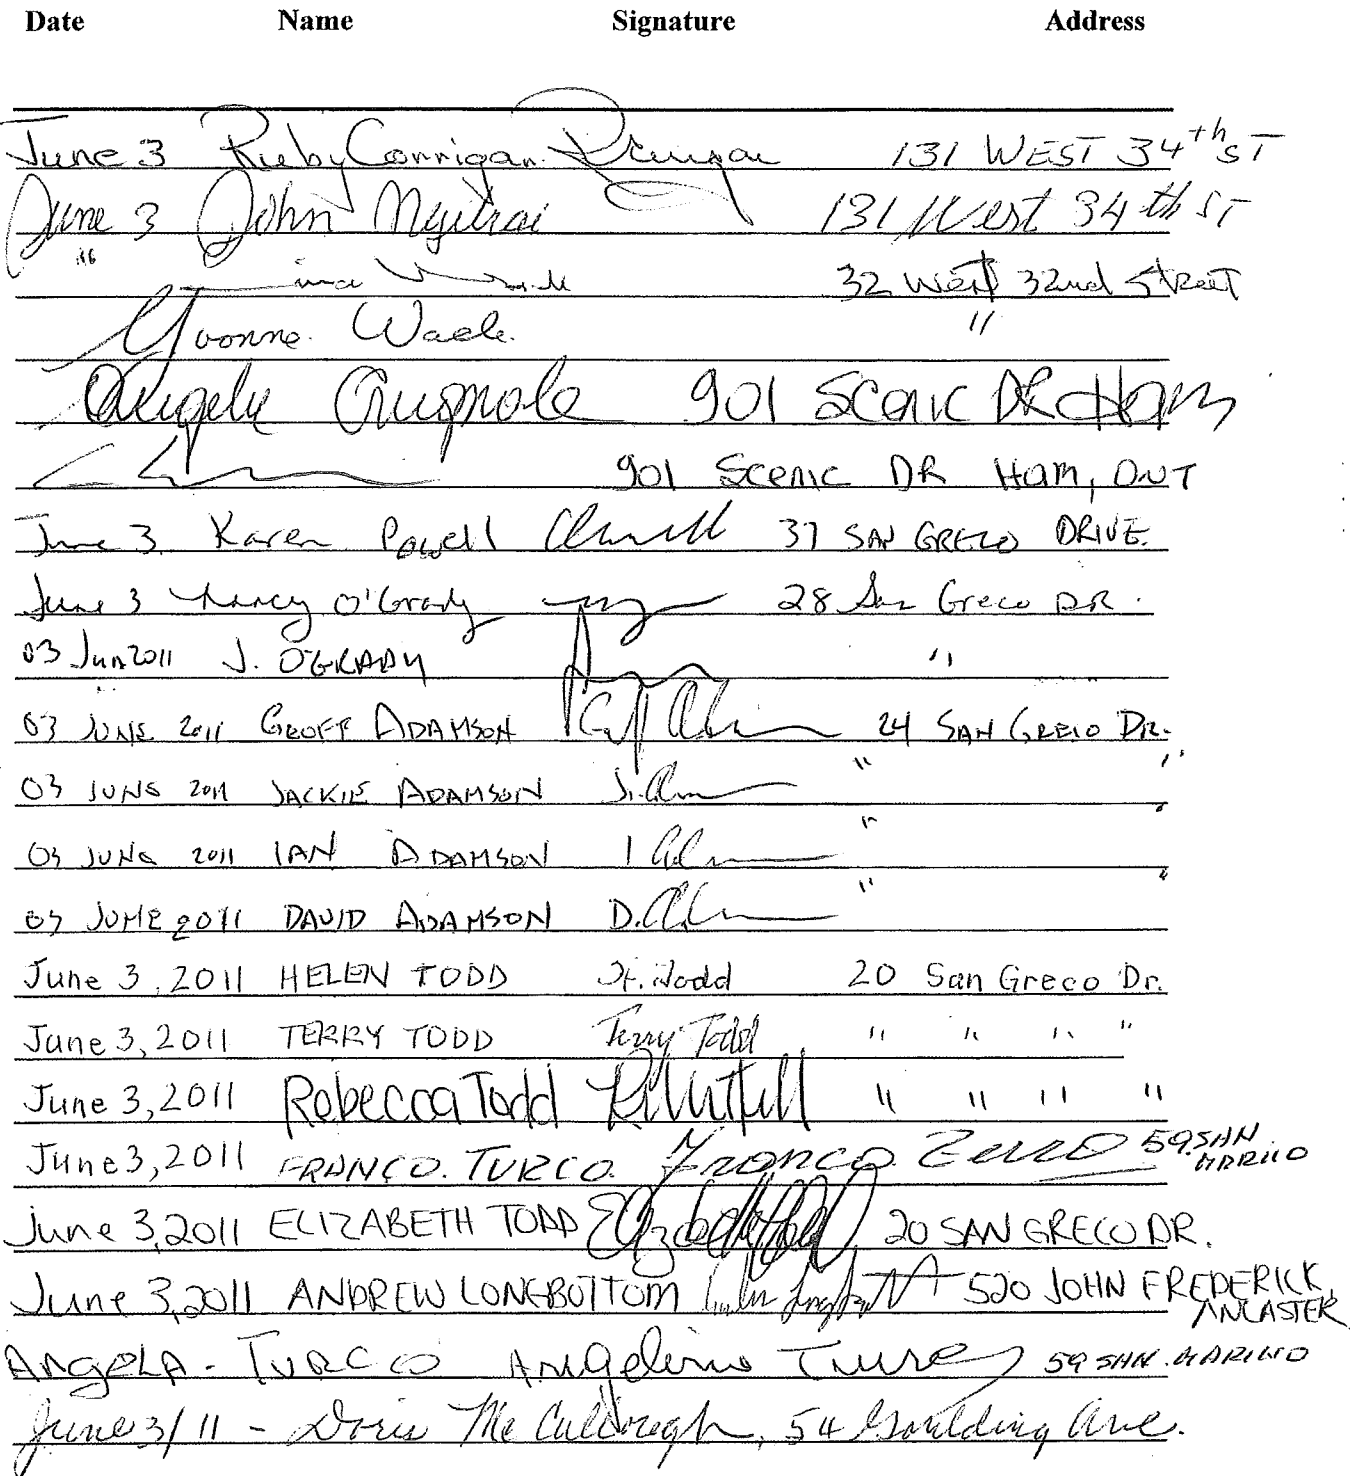 Date Name Signature Address
June 3 Ruby Corrigan 131 WEST 34th ST
June 3 John Nyitrai 131 West 34th ST
32 West 32nd Street
Yvonne Wade. "
Angela 901 Scenic DR Ham
901 Scenic DR Ham, ONT
June 3 Karen Powell 37 SAN GRECO DRIVE.
June 3 Nancy O'Grady 28 San Greco DR.
03 Jun 2011 J. O'GRADY "
03 JUNE 2011 GEOFF ADAMSON 24 SAN GRECO DR.
03 JUNE 2011 JACKIE ADAMSON J. " "
03 JUNE 2011 IAN ADAMSON I " "
03 JUNE 2011 DAVID ADAMSON D. " "
June 3, 2011 HELEN TODD H. Todd 20 San Greco Dr.
June 3, 2011 TERRY TODD Terry Todd " " " "
June 3, 2011 Rebecca Todd " " " "
June 3, 2011 FRANCO. TURCO. Franco Turco 59 SAN MARINO
June 3, 2011 ELIZABETH TODD Elizabeth Todd 20 SAN GRECO DR.
June 3, 2011 ANDREW LONGBOTTOM 520 JOHN FREDERICK, ANCASTER
ANGELA - TURCO Angelina Turco 59 SAN. MARINO
June 3/11 - Doris McCullough, 54 Goulding Ave.